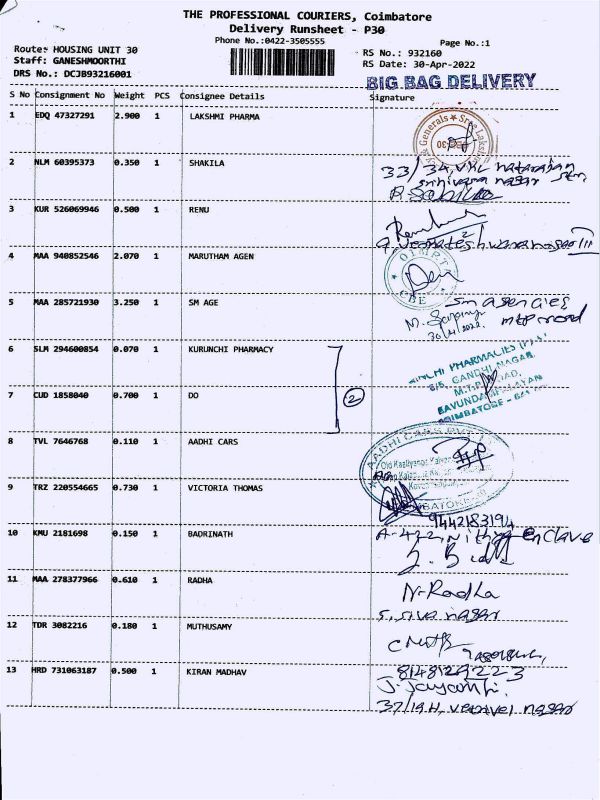 THE PROFESSIONAL COURIERS, Coimbatore
Delivery Runsheet - P30
Phone No.:0422-3505555
Page No.:1
Route: HOUSING UNIT 30
RS No.: 932160
Staff: GANESHMOORTHI
RS Date: 30-Apr-2022
DRS No.: DCJB93216001
BIG BAG DELIVERY
S No Consignment No Weight PCS Consignee Details Signature
1 EDQ 47327291 2.900 1 LAKSHMI PHARMA
& Generals * Sree Lakshmi
2 NLM 60395373 0.350 1 SHAKILA
33/34, VKL natarajan
3 KUR 526069946 0.500 1 RENU
4 MAA 940852546 2.070 1 MARUTHAM AGEN
CBE
5 MAA 285721930 3.250 1 SM AGE
sm agencies
mtp road
30/4/2022.
6 SLM 294600854 0.070 1 KURUNCHI PHARMACY
PHARMACIES (P)
GANDHI NAGAR
M.T.P. ROAD,
7 CUD 1858040 0.700 1 DO
2
COIMBATORE
8 TVL 7646768 0.110 1 AADHI CARS
AADHI CARS PVT
9 TRZ 220554665 0.730 1 VICTORIA THOMAS
9442183194
10 KMU 2181698 0.150 1 BADRINATH
A-422, Nithya enclave
11 MAA 278377966 0.610 1 RADHA
N. Radha
s. siva nagar
12 TDR 3082216 0.180 1 MUTHUSAMY
8148129223
13 HRD 731063187 0.500 1 KIRAN MADHAV
J. Jayanthi.
37/19H, vetrivel nagar